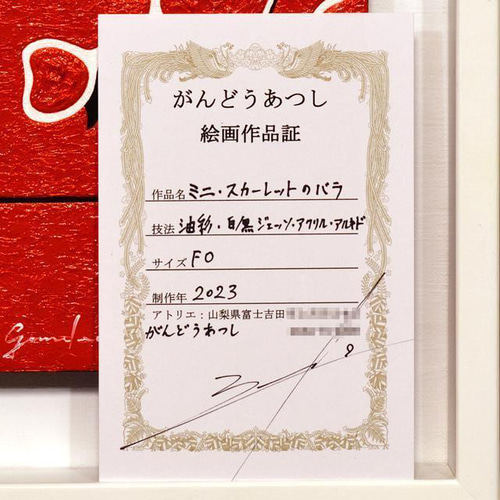 がんどうあつし
絵画作品証
作品名 ミニ・スカーレットのバラ
技法 油彩・白黒ジェッソ・アクリル・アルキド
サイズ F0
制作年 2023
アトリエ:山梨県富士吉田
がんどうあつし